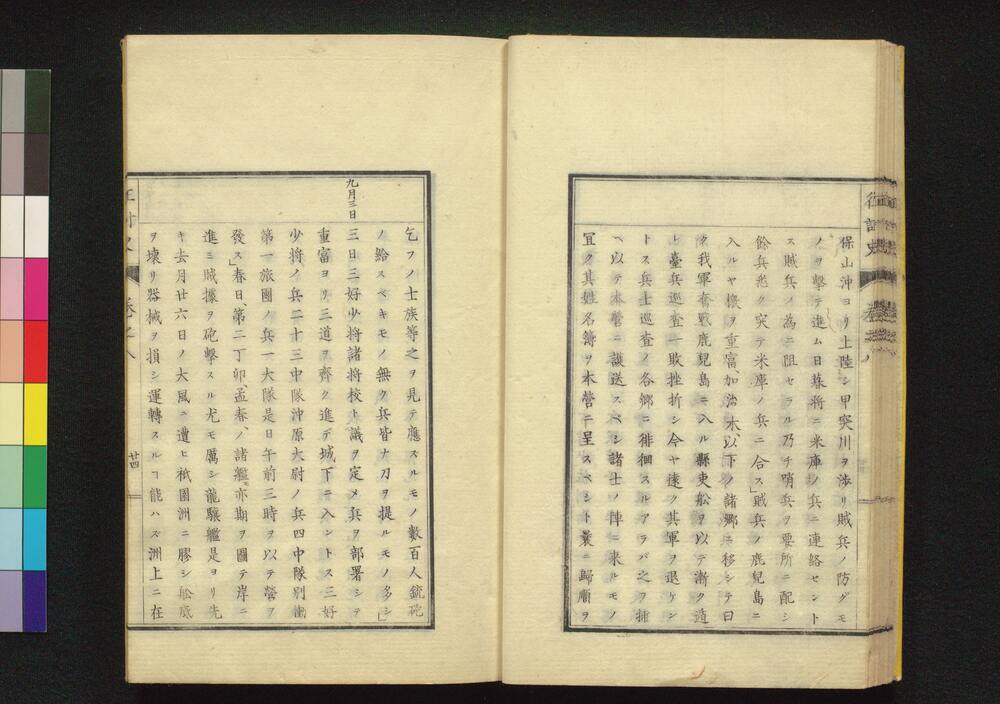 征討史
卷之八
保山沖ヨリ上陸シ甲突川ヲ渉リ賊兵ノ防グモ
ノヲ擊テ進ム日暮將ニ米庫ノ兵ニ連絡セント
ス賊兵ノ為ニ阻セラル乃チ哨兵ヲ要所ニ配シ
餘兵悉ク突テ米庫ノ兵ニ合ス」賊兵ノ鹿兒島ニ
入ルヤ檄ヲ重富、加治木、以下ノ諸鄉ニ移シテ曰
ク我軍奮戰鹿兒島ニ入ル縣吏船ヲ以テ漸ク遁
ト臺兵巡査一敗挫折シ今ヤ遠ク其軍ヲ退ケシ
トス兵士巡査ノ各鄉ニ徘徊スルアラバ之ヲ捕
ヘ以テ本營ニ護送スベシ諸士ノ陣ニ来ルモノ
宜ク其姓名簿ヲ本營ニ呈スベシト曩ニ歸順ヲ
乞フノ士族等之ヲ見テ應スルモノ數百人銃砲
ノ給スベキモノ無ク兵皆ナ刀ヲ提ルモノ多シ」
九月三日
三日三好少將諸將校ト議ヲ定メ兵ヲ部署シテ
重富ヨリ三道ヲ齊ク進デ城下ニ入ントス三好
少將ノ兵二十三中隊沖原大尉ノ兵四中隊別働
第一旅團ノ兵一大隊是日午前三時ヲ以テ營ヲ
發ス」春日、第二丁卯、孟春、ノ諸艦亦期ヲ圖テ岸ニ
進ミ賊據ヲ砲擊スル尤モ厲シ龍驤艦是ヨリ先
キ去月廿六日ノ大風ニ遭ヒ祇園洲ニ膠シ舩底
ヲ壊リ器械ヲ損シ運轉スルヿ能ハズ洲上ニ在
征討史
卷之八
廿四